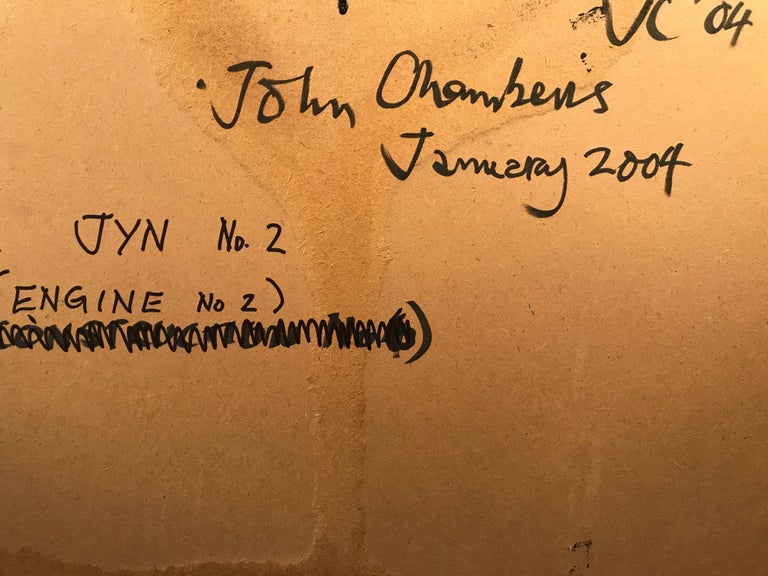 JC '04
John Chambers
January 2004
JYN No. 2
(ENGINE No 2)
)